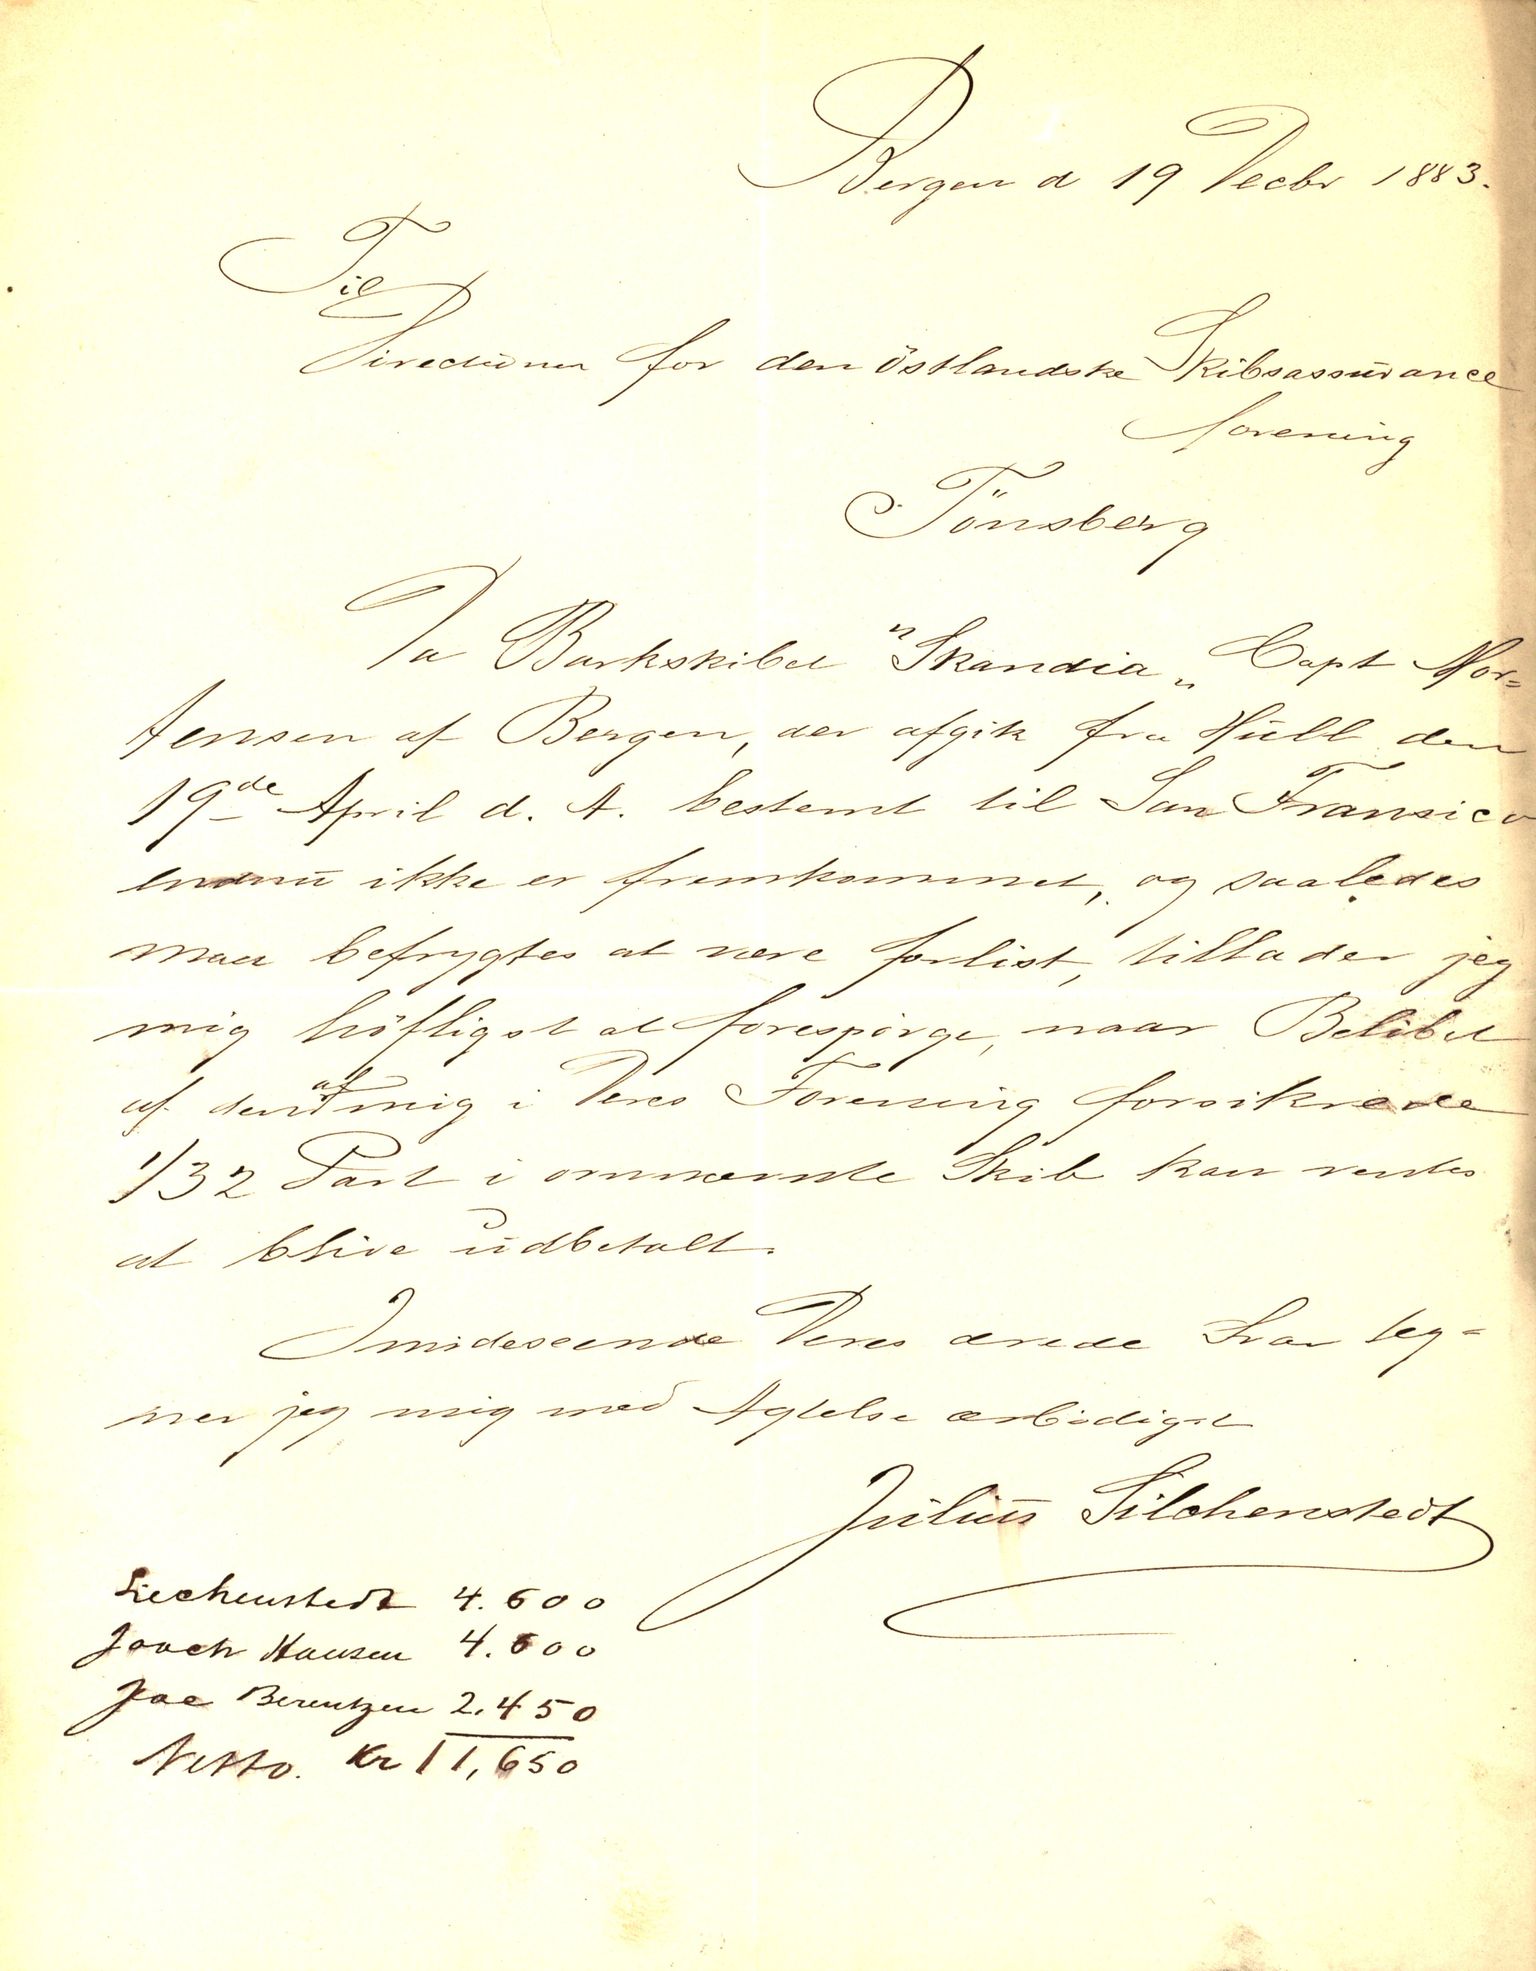 Bergen d 19 Decbr 1883.
Til
Directionen for den östlandske Skibsassurance
forening
Tönsberg
Da Barkskibet "Skandia" Capt Mor=
tensen af Bergen, der afgik fra Hull den
19de April d. A. bestemt til San Fransico
endnu ikke er fremkommet, og saaledes
maa befrygtes at være forlist, tillader jeg
mig höfligst at forespörge, naar Belöbet
af den af mig i Deres Forening forsikrede
1/32 Part i omnævnte Skib kan ventes
at blive udbetalt.
Imödeseende Deres ærede Svar teg=
ner jeg mig med Agtelse ærbödigst
Julius
Liechenstedt 4.600
Joach Hansen 4.600
Jac Berentzen 2.450
Netto. Kr 11,650